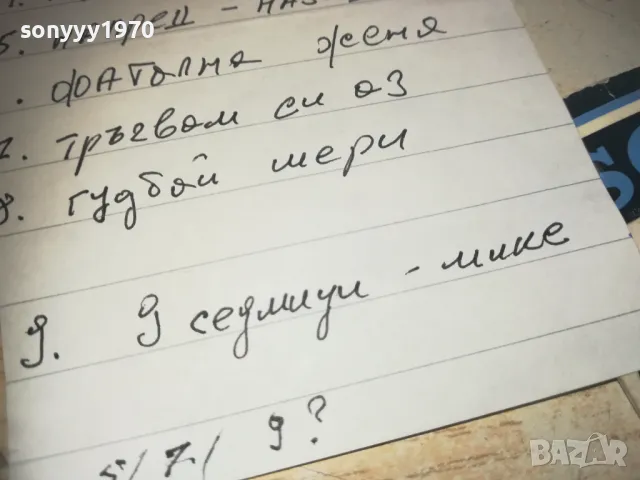 sonyyy1970
5.
. фатална женя
7. тръгвам си аз
8. гудбай мери
9. 9 седмици - мике
5/7/ 9?
BAZAR
bg